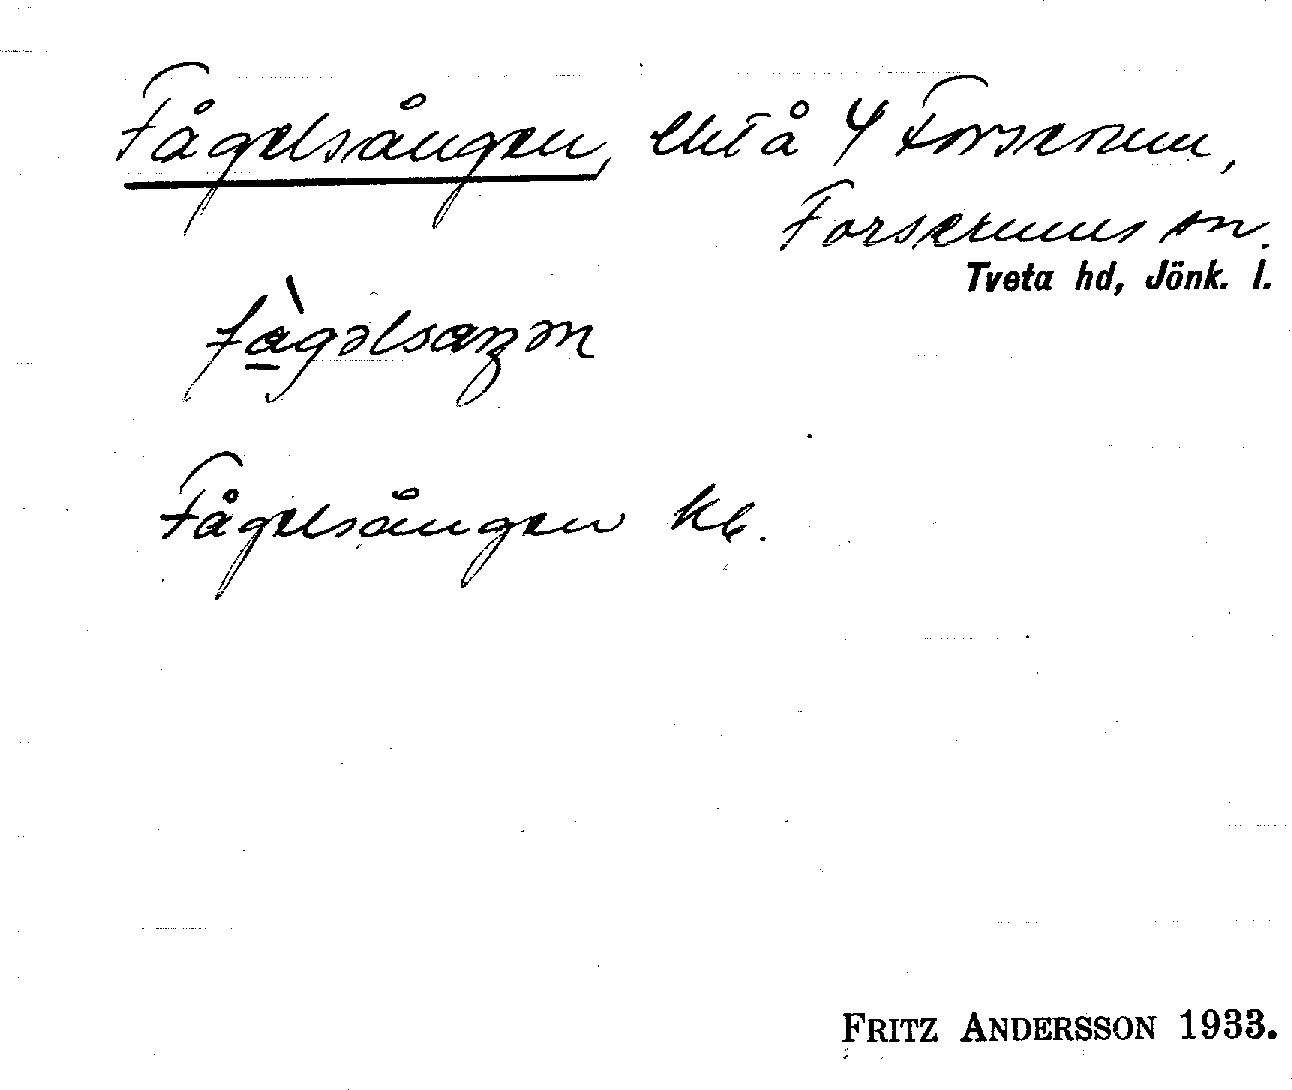 Fågelsången, lht å 4 Forserum,
Forserums sn.
Tveta hd, Jönk. l.
fàgəlsaŋən
Fågelsången kb.
FRITZ ANDERSSON 1933.